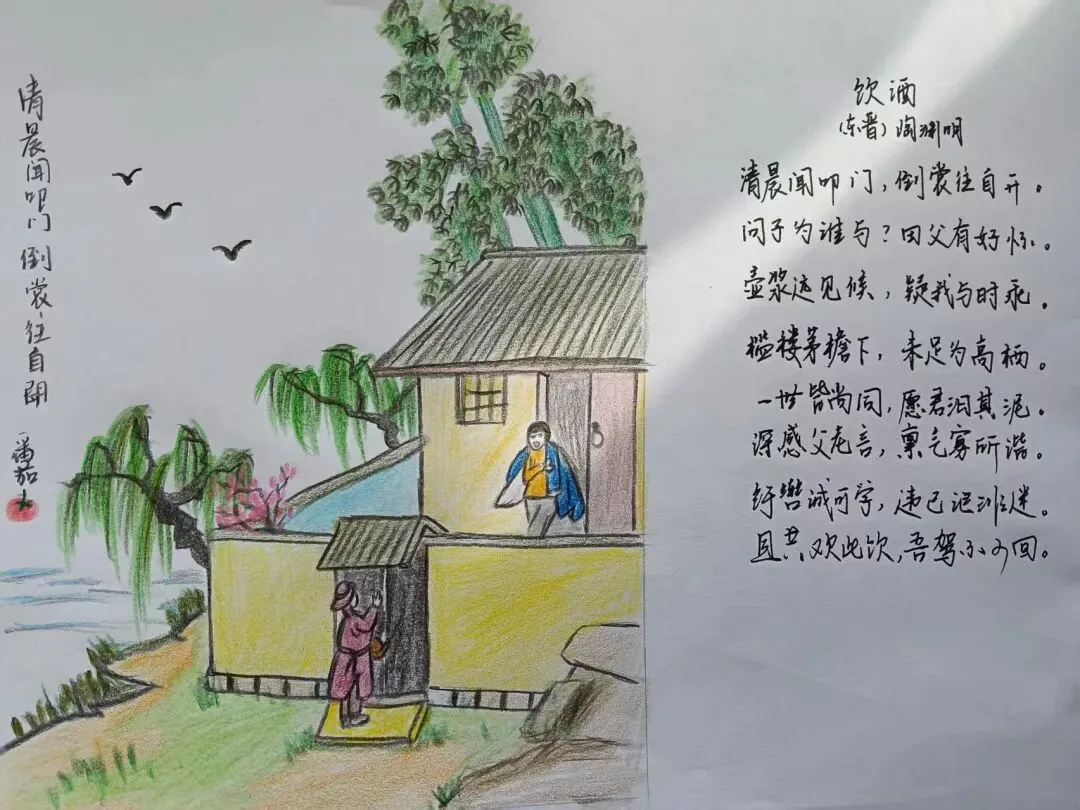 清晨闻叩门 倒裳往自開
番茄
饮酒
（东晋）陶渊明
清晨闻叩门，倒裳往自开。
问子为谁与？田父有好怀。
壶浆远见候，疑我与时乖。
褴褛茅檐下，未足为高栖。
一世皆尚同，愿君汩其泥。
深感父老言，禀气寡所谐。
纡辔诚可学，违己讵非迷。
且共欢此饮，吾驾不可回。